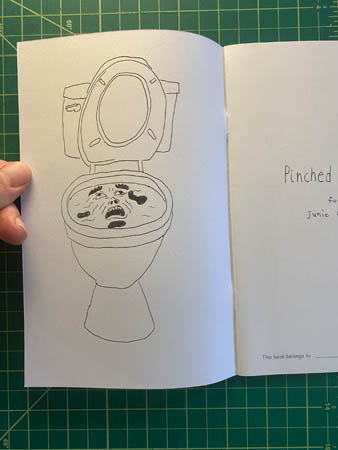 Pinched
Junie
This book belongs to